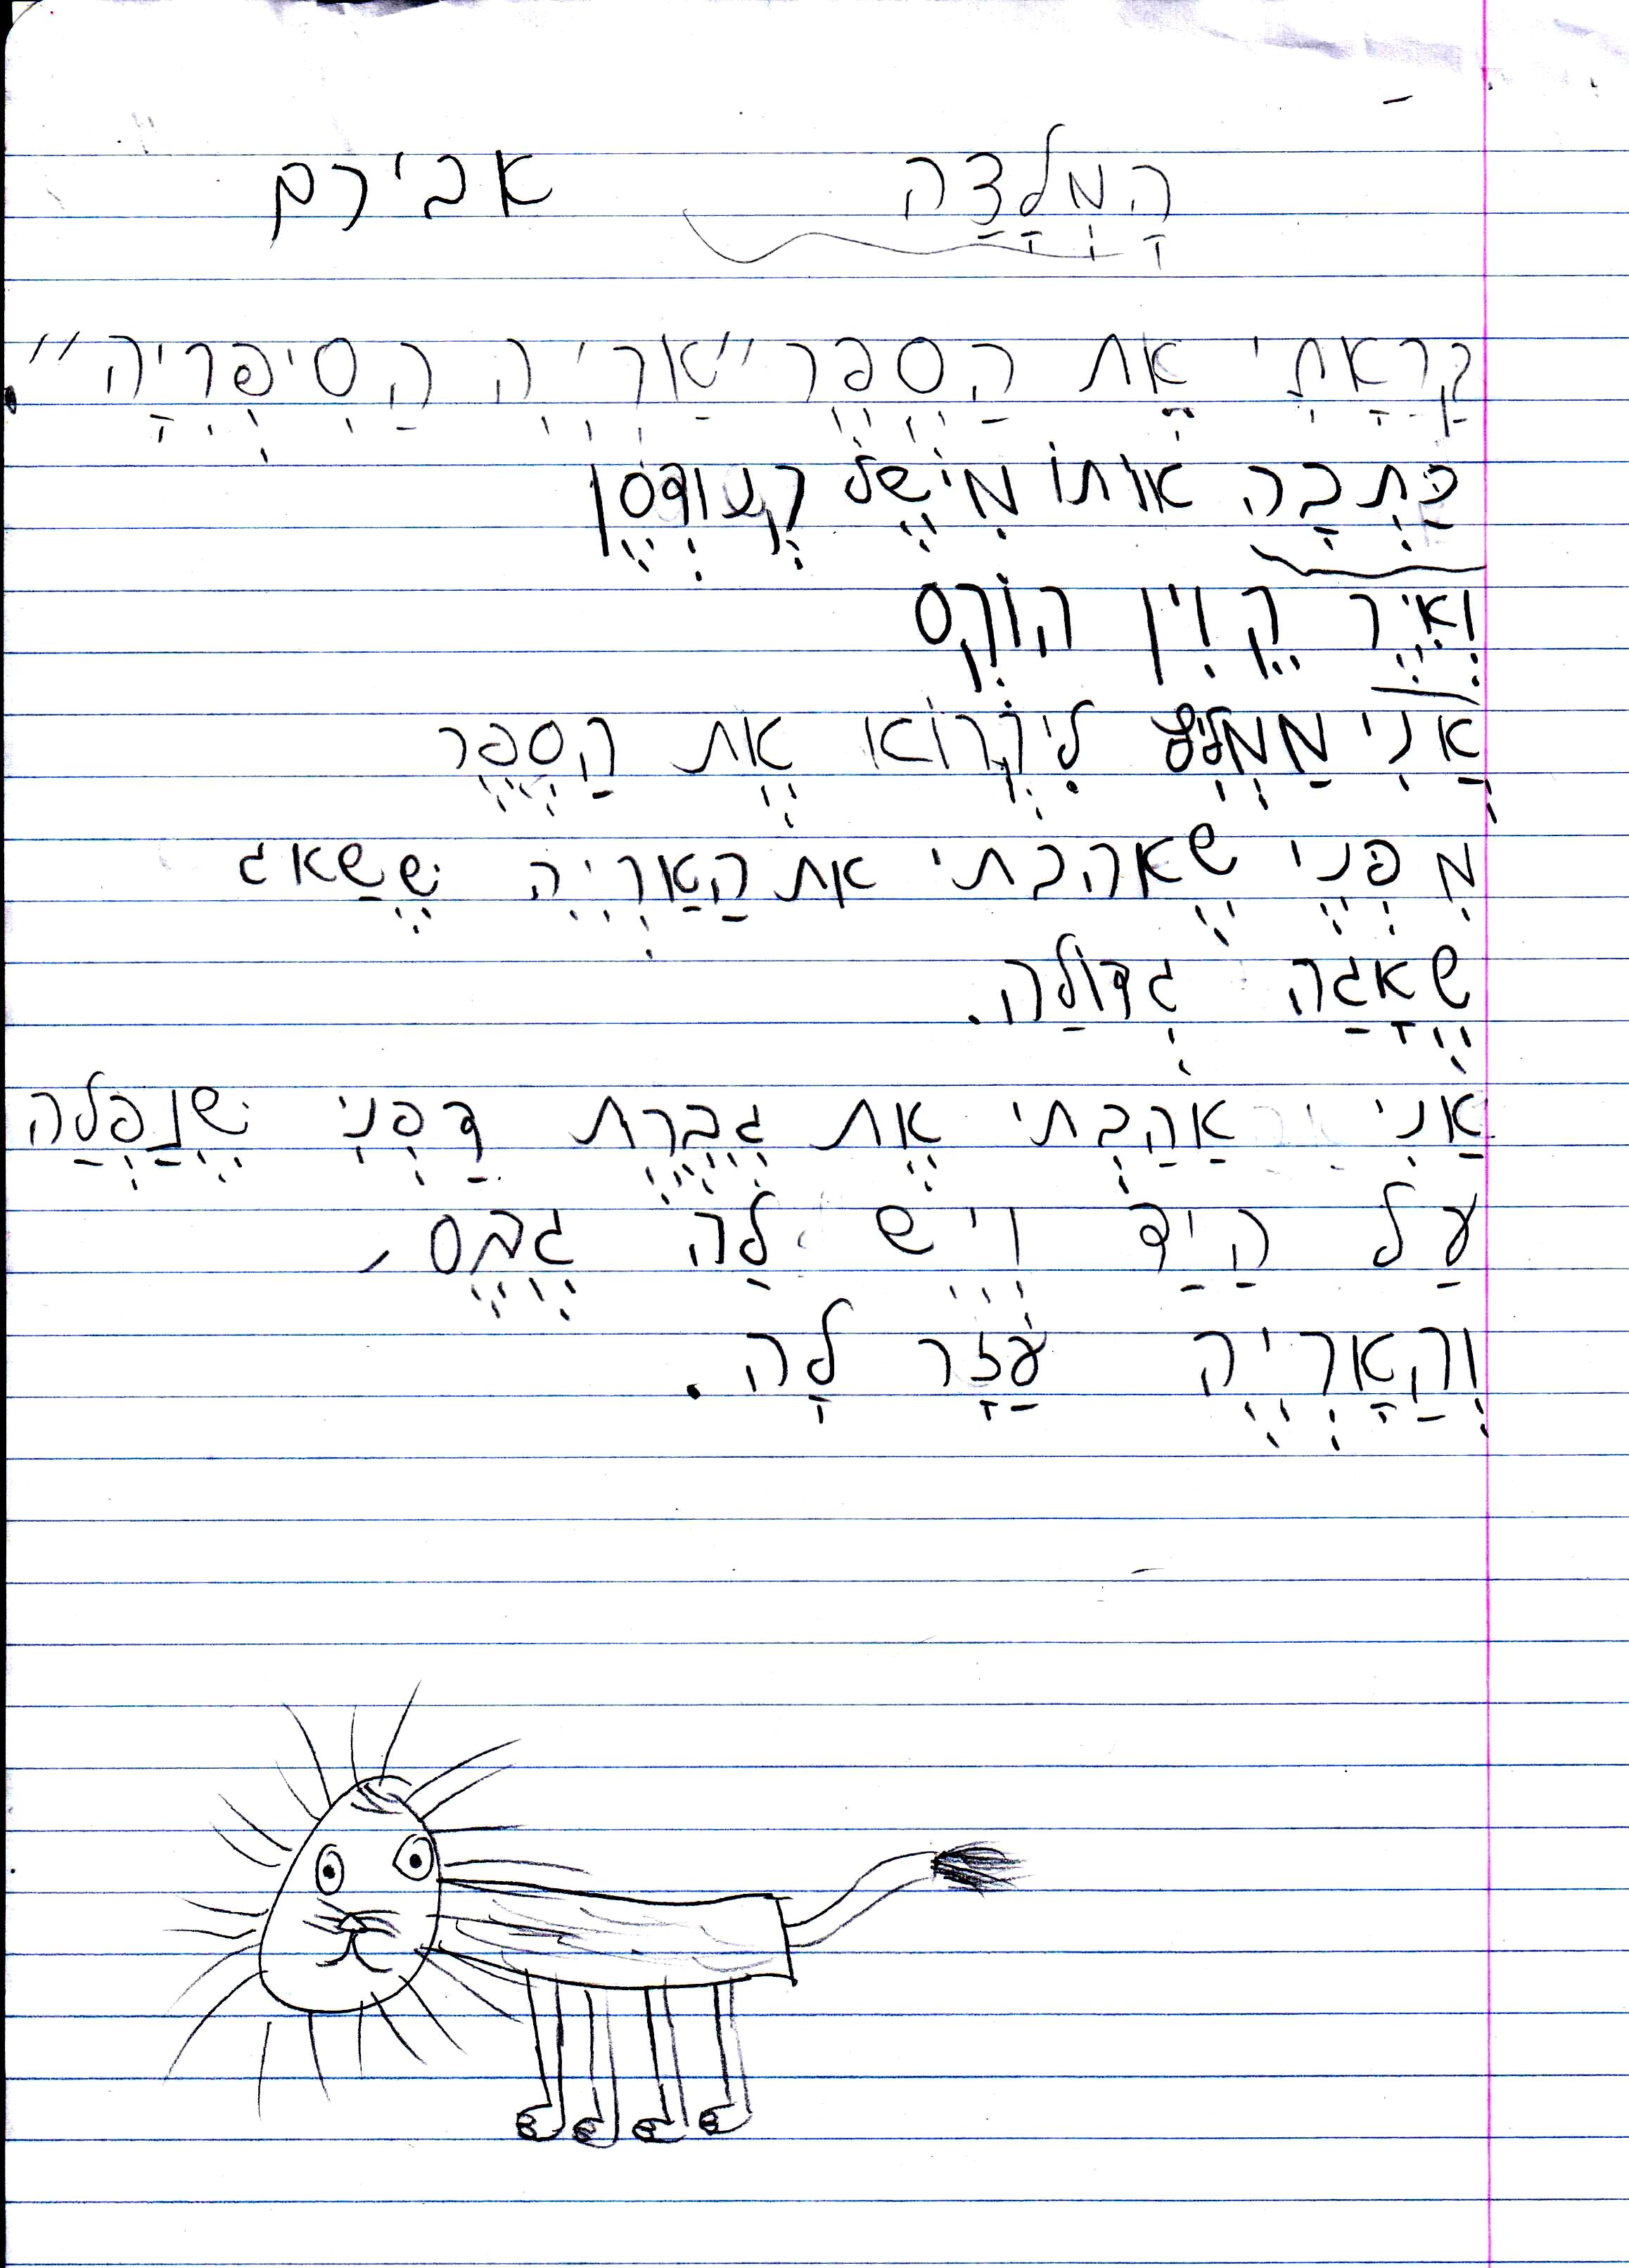 הָמְלָצַה אבירם
קַרָאתִי אֶת הַסֶפֶר "אַרְיֵה הַסִיפְרִיָה"
כַּתְבָה אוֹתוֹ מִישֶל קְנוּדְסֶן
וְאִיֶר קֶוִין הוֹקְס
אֲנִי מַמְלִיץ לִיקְרוֹא אֶת הַסֶפֶר
מִפְּנֵי שֶאהבתי את הַאַרְיֵה שֶשַאג
שֶאָגַה גְדוֹלַה.
אַנִי אַהַבְתי אֶת גְבֶרֶת דַפְנִי שֶנַפְלַה
עַל הַיַד וְיֵש לַה גֶבֶס,
וְהַאָרְיֵה עַזָר לָה.